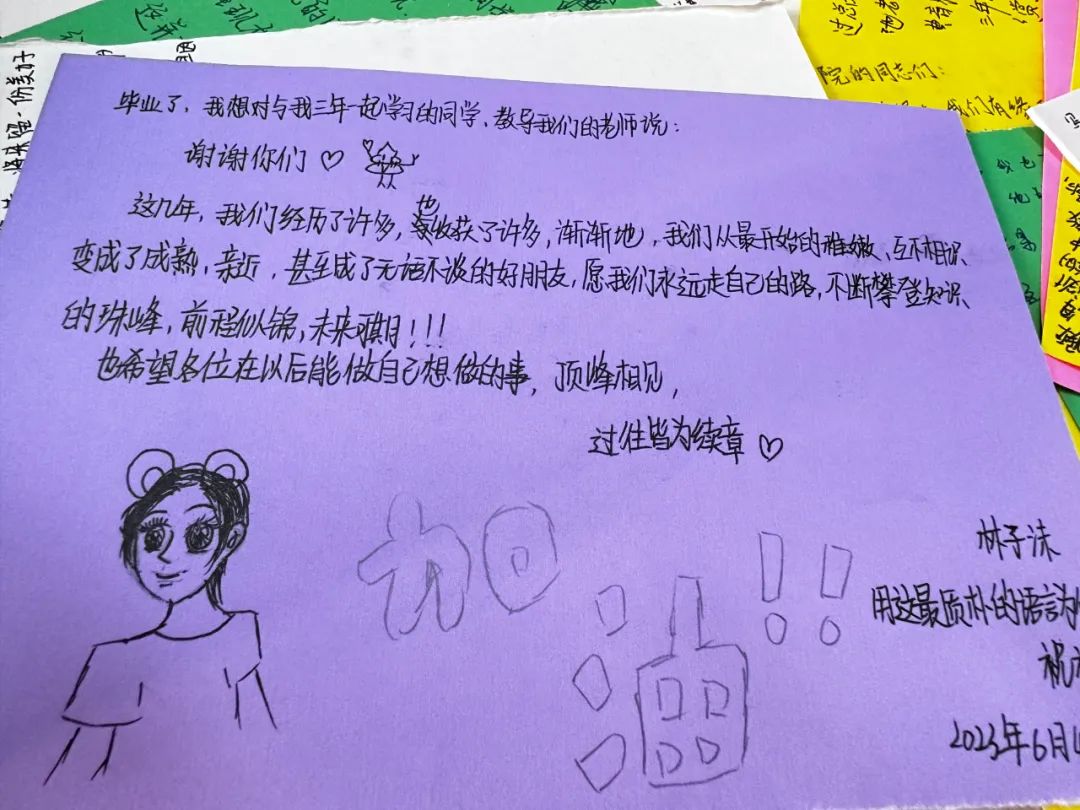 毕业了,我想对与我三年一起学习的同学、教导我们的老师说:
谢谢你们♡
这几年,我们经历了许多,也收获了许多,渐渐地,我们从最开始的稚嫩、互不相识、
变成了成熟、亲近,甚至成了无话不谈的好朋友,愿我们永远走自己的路,不断攀登知识
的珠峰,前程似锦,未来可期!!!
也希望各位在以后能做自己想做的事,顶峰相见,
过往皆为续章♡
加油!!
林子沫
用这最质朴的语言为
祝
2023年6月
院的同志们:
我们有缘
将来留一份美好
过总
三年